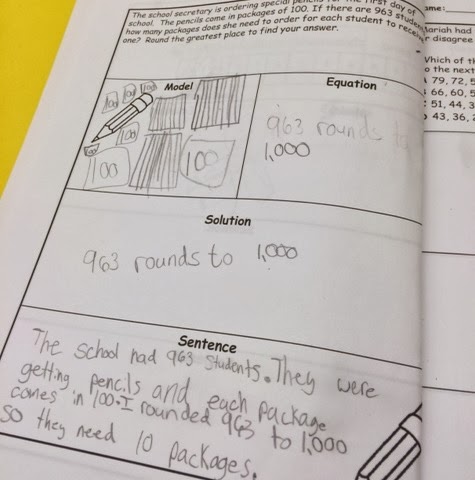 The school secretary is ordering special pencils for the first day of
school. The pencils come in packages of 100. If there are 963 students
how many packages does she need to order for each student to receive
one? Round the greatest place to find your answer.
Model
100 100 100
100
100
100
100
Equation
963 rounds to
1,000
Solution
963 rounds to 1,000
Sentence
The school had 963 students. They were
getting pencils and each package
comes in 100. I rounded 963 to 1,000
so they need 10 packages.
ame:
ariah had
r disagree
Which of th
o the next
79, 72, 5
66, 60, 5
51, 44, 3
43, 36, 2